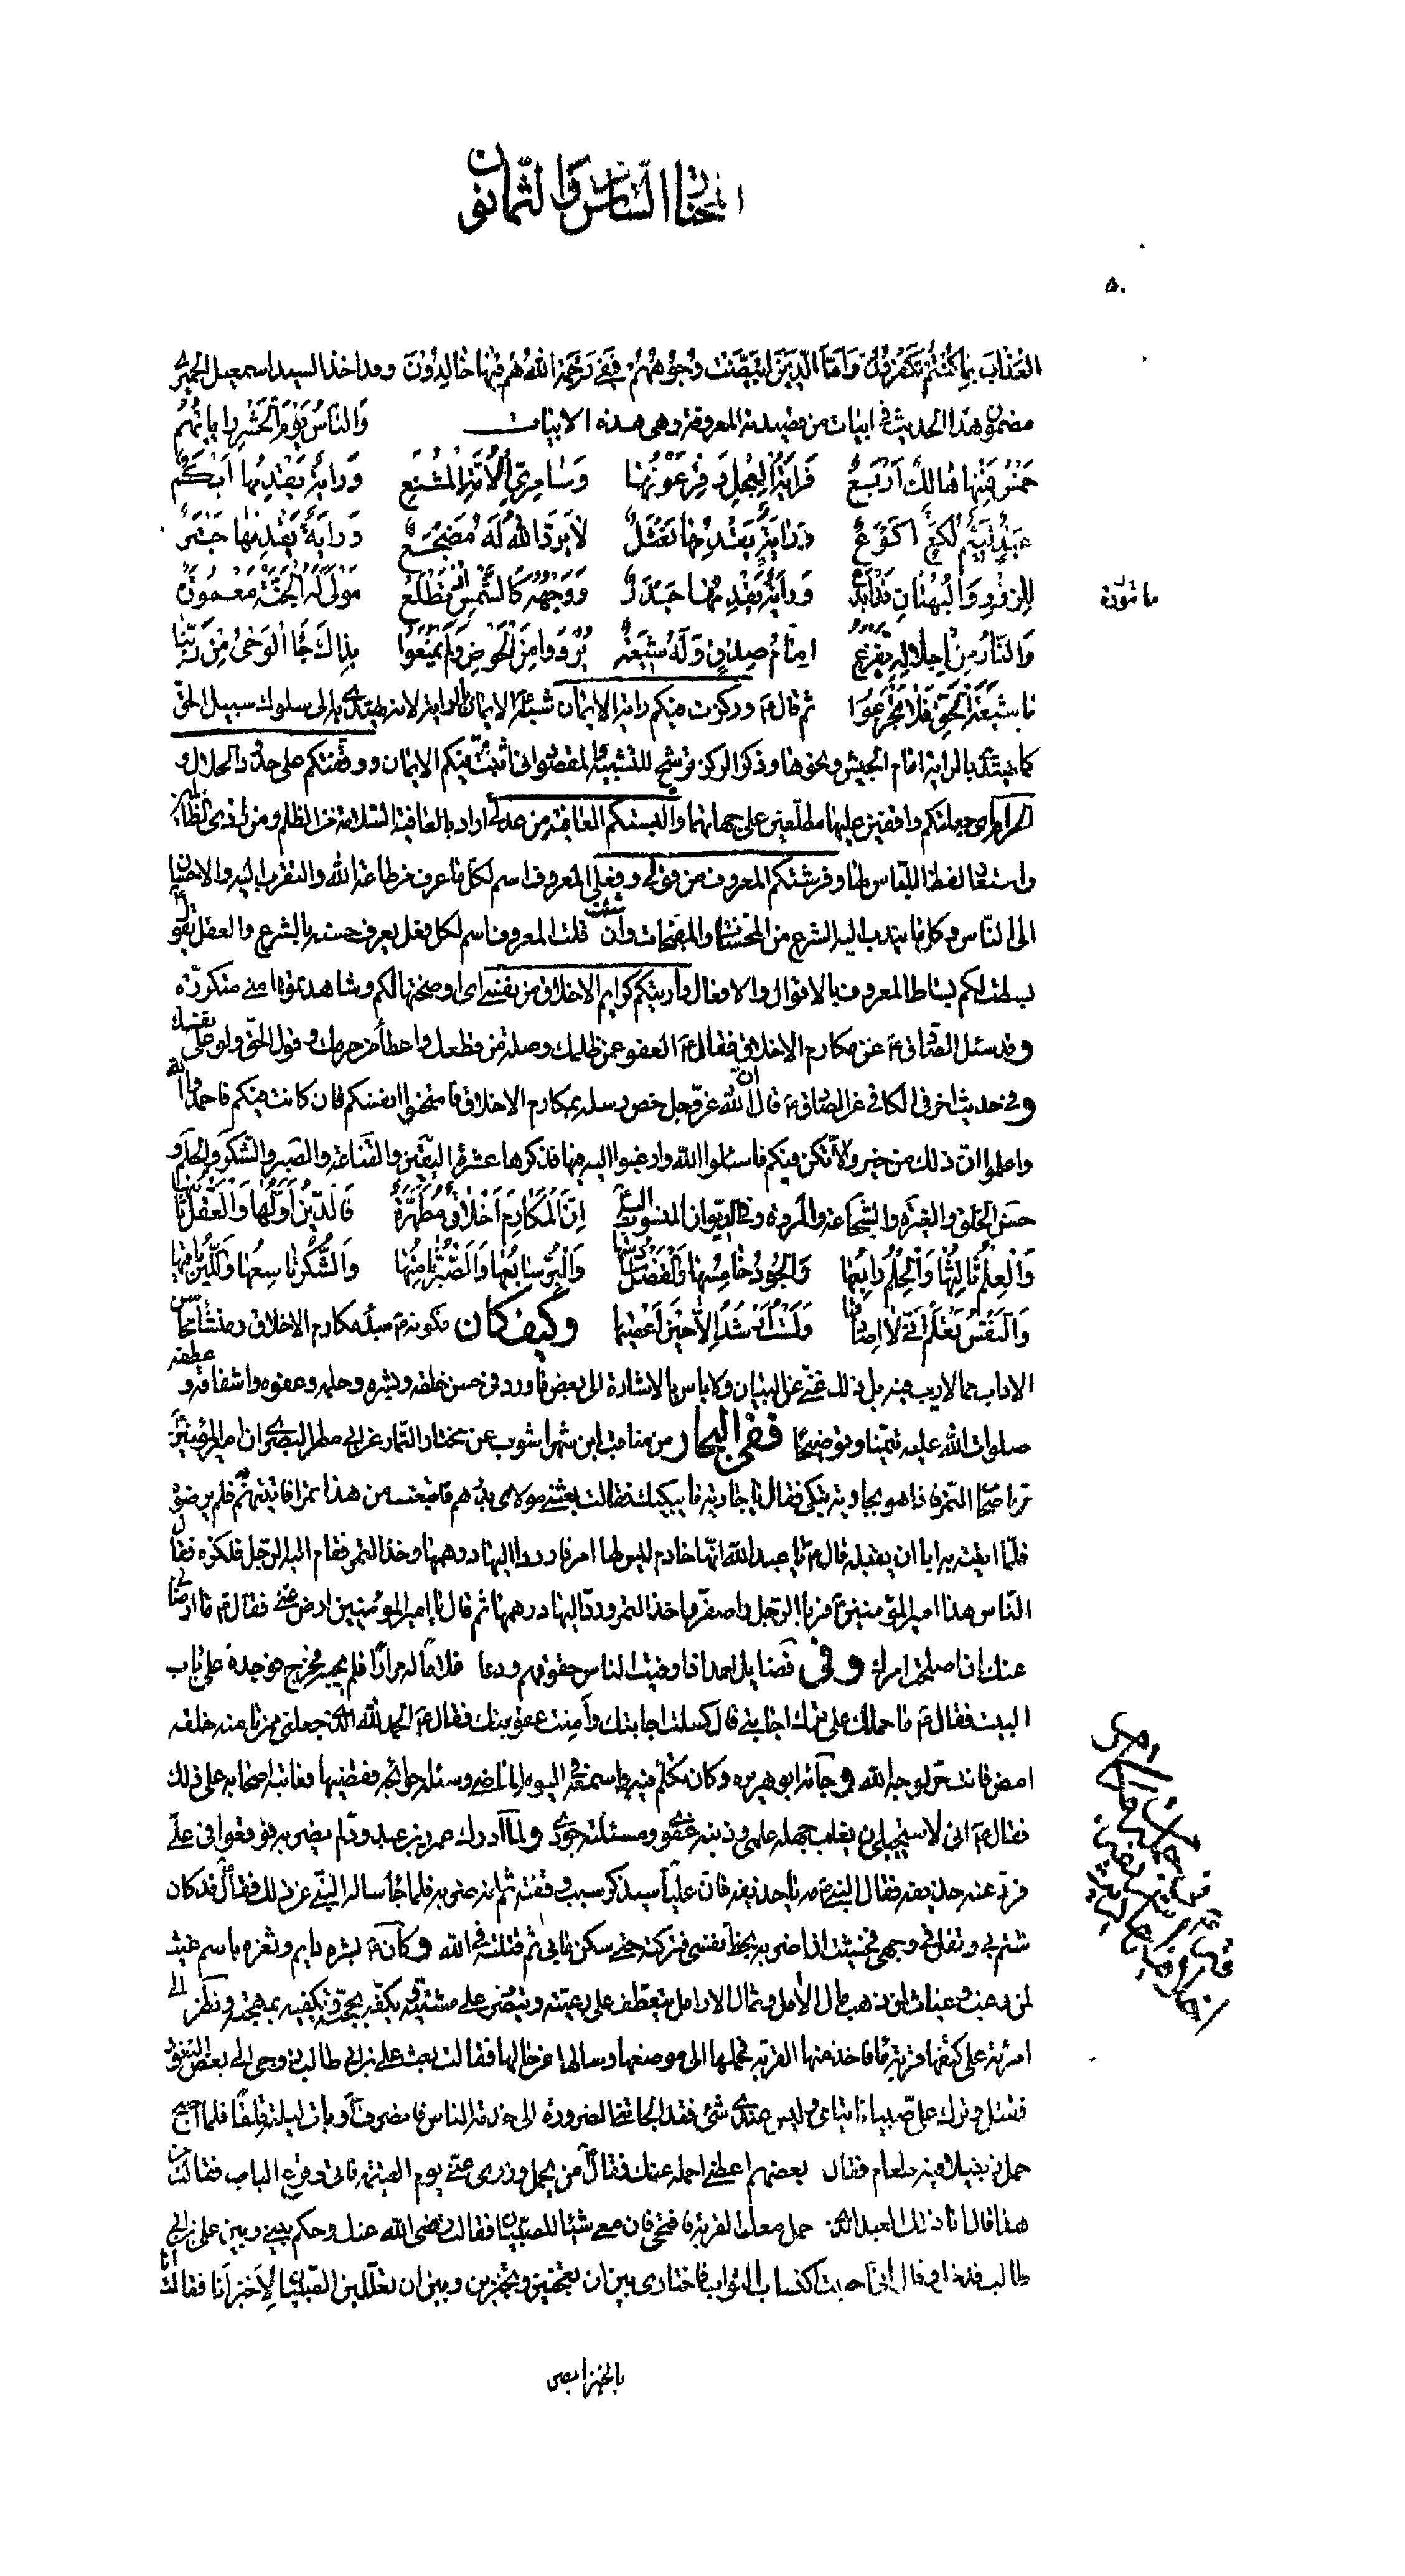 المختار السادس والثمانون
٥٠
العَذابَ بِما كُنْتُمْ تَكْفُرُونَ وَاَمَّا الَّذينَ ابْيَضَّتْ وُجُوهُهُمْ فَفي رَحْمَةِ اللهِ هُمْ فيها خالِدُونَ وقد اخذ السيد اسمعيل الحميري
مضمون هذا الحديث في ابيات من قصيدته المعروفة وهي هذه الابيات وَالنّاسُ يَوْمَ الْحَشْرِ راياتُهُمْ
خَمْسٌ فَمِنْها هالِكٌ اَرْبَعٌ فَرايَةُ الْعِجْلِ وَفِرْعَوْنُها وَسامِرِيُّ الْاُمَّةِ الْمُشْنَعُ وَرايَةٌ يَقْدِمُها اَبْكَمٌ
عَبْدٌ لَئيمٌ لُكَعٌ اَكْوَعٌ وَرايَةٌ يَقْدِمُها نَعْثَلٌ لا بَرَّدَ اللهُ لَهُ مَضْجَعٌ وَرايَةٌ يَقْدِمُها حَبْتَرٌ
لِلزُّورِ وَالْبُهْتانِ قَدْ اَبْدَعَ وَرايَةٌ يَقْدِمُها حَيْدَرٌ وَوَجْهُهُ كَالشَّمْسِ اِذْ تَطْلَعُ مَوْلىً لَهُ الْجَنَّةُ مَعْمُورَةٌ
مأمورة
وَالنّارُ مِنْ اِجْلالِهِ تَفْزَعُ اِمامُ صِدْقٍ وَلَهُ شيعَةٌ يُرْوَوا مِنَ الْحَوْضِ وَلَمْ يُمْنَعُوا بِذاكَ جاءَ الْوَحْيُ مِنْ رَبِّنا
يا شيعَةَ الْحَقِّ فَلا تَجْزَعُوا ثم قال ع وركزت فيكم راية الايمان شبّه الايمان بالراية لانه يهتدى به الى سلوك سبيل الحق
كما يهتدى بالراية امام الجيش ونحوها وذكر الركز ترشيح للتشبيه والمقصود انى اثبتّ فيكم الايمان ووقفتكم على حدود الحلال و
الحرام اى جعلتكم واقفين عليها مطلعين على جهاتهما والبستكم العافية من عدلى اراد بالعافية السلامة من الظلم ومن اذى الظالمين
واستعار لفظ اللباس لها وفرشتكم المعروف من قولى وفعلى المعروف اسم لكل ما عرف من طاعة الله والتقرب اليه والاحسان
الى الناس وكل ما يندب اليه الشرع من المحسنات والمقبحات وان شئت قلت المعروف اسم لكل فعل يعرف حسنه بالشرع والعقل يقول
بسطت لكم بساط المعروف بالاقوال والافعال واريتكم كرايم الاخلاق من نفسى اى اوضحتها لكم وشاهدتموها منى متكررة
وقد سئل الصادق ع عن مكارم الاخلاق فقال ع العفو عمن ظلمك وصلة من قطعك واعطاء من حرمك وقول الحق ولو على نفسك
وفى حديث اخر فى الكافى عن الصادق ع قال ان الله عز وجل خص رسله بمكارم الاخلاق فامتحنوا انفسكم فان كانت فيكم فاحمدوا الله
واعلموا ان ذلك من خير والا تكن فيكم فاسئلوا الله وارغبوا اليه فيها فذكرها عشرة اليقين والقناعة والصبر والشكر والحلم و
حسن الخلق والغيرة والشجاعة والمروة وفى الديوان المنسوب اليه اِنَّ الْمَكارِمَ اَخْلاقٌ مُطَهَّرَةٌ فَالدّينُ اَوَّلُها وَالْعَقْلُ ثانيها
وَالْعِلْمُ ثالِثُها وَالْحِلْمُ رابِعُها وَالْجُودُ خامِسُها وَالْفَضْلُ سادِسُها وَالْبِرُّ سابِعُها وَالصَّبْرُ ثامِنُها وَالشُّكْرُ تاسِعُها وَاللّينُ باقيها
وَالنَّفْسُ تَعْلَمُ اَنّي لا اُصادِقُها وَلَسْتُ اَرْشُدُ اِلّا حينَ اَعْصيها وكيف كان فكونه ع مبدء مكارم الاخلاق ومنشأ محاسن
الاداب مما لا ريب فيه بل ذلك غنى عن البيان ولا باس بالاشارة الى بعض ما ورد فى حسن خلقه وبشره وحلمه وعفوه واشفاقه و عطفه
صلوات الله عليه تيمنا وتوضيحا ففى البحار من مناقب ابن شهراشوب عن مختار التمار عن ابى مطر البصرى ان امير المؤمنين
مر باصحاب التمر فاذا هو بجارية تبكى فقال يا جارية ما يبكيك فقالت بعثنى مولاى بدرهم فابتعت من هذا تمرا فاتيتهم به فلم يرضوه
فلما اتيت به ابى ان يقبله قال ع يا عبد الله انها خادم ليس لها امر فاردد اليها درهمها وخذ التمر فقام اليه الرجل فلكزه فقال
الناس هذا امير المؤمنين ع فربا الرجل واصفر واخذ التمر ورد اليها درهمها ثم قال يا امير المؤمنين ارض عنى فقال ع ما ارضانى
عنك ان اصلحت امرك وفى فضايل احمد اذا وفيت الناس حقوقهم ودعا غلاما له مرارا فلم يجبه فخرج فوجده على باب
البيت فقال ع ما حملك على ترك اجابتى قال كسلت اجابتك وامنت عقوبتك فقال ع الحمد لله الذى جعلنى ممن تامنه خلقه
امض فانت حر لوجه الله وجائه ابو هريره وكان تكلم فيه واسمعه فى اليوم الماضى وسئله حوائجه فقضيها فعاتبه اصحابه على ذلك
فقال ع انى لاستحيى ان يغلب جهله علمى وذنبه عفوى ومسئلته جودى ولما ادرك عمرو بن عبد ود لم يضربه فوقعوا فى على
فرد عنه حذيفه فقال النبى ص مه يا حذيفه فان عليا سيذكر سبب وقفته ثم انه ضربه فلما جاء ساله النبى عن ذلك فقال ع قد كان
شتم امى وتفل فى وجهى فخشيت ان اضربه لحظ نفسى فتركته حتى سكن ما بى ثم قتلته فى الله وكان ع بشره دايم وثغره باسم غيث
لمن رغب وغياث لمن ذهب مال الامل وثمال الارامل يتعطف على رعيته ويتصرف على مشيته ويكفه بحجته ويكفيه بمهجته ونظر الى
امرئة على كتفها قربة ماء فاخذ منها القربة فحملها الى موضعها وسالها عن حالها فقالت بعث على بن ابى طالب زوجى الى بعض الثغور
فقتل وترك على صبيانا يتامى وليس عندى شئ فقد الجاتنى الضرورة الى خدمة الناس فانصرف وبات ليلته قلقا فلما اصبح
حمل زنبيلا فيه طعام فقال بعضهم اعطنى احمله عنك فقال من يحمل وزرى عنى يوم القيمة فاتى وقرع الباب فقالت من
هذا قال انا ذلك العبد الذى حمل معك القربة فافتحى فان معى شيئا للصبيان فقالت رضى الله عنك وحكم بينى وبين على بن ابى
طالب فدخل وقال انى احببت اكتساب الثواب فاختارى بين ان تعجنين وتخبزين وبين ان تعللين الصبيان لاخبز انا فقالت انا
بالخبز ابصر